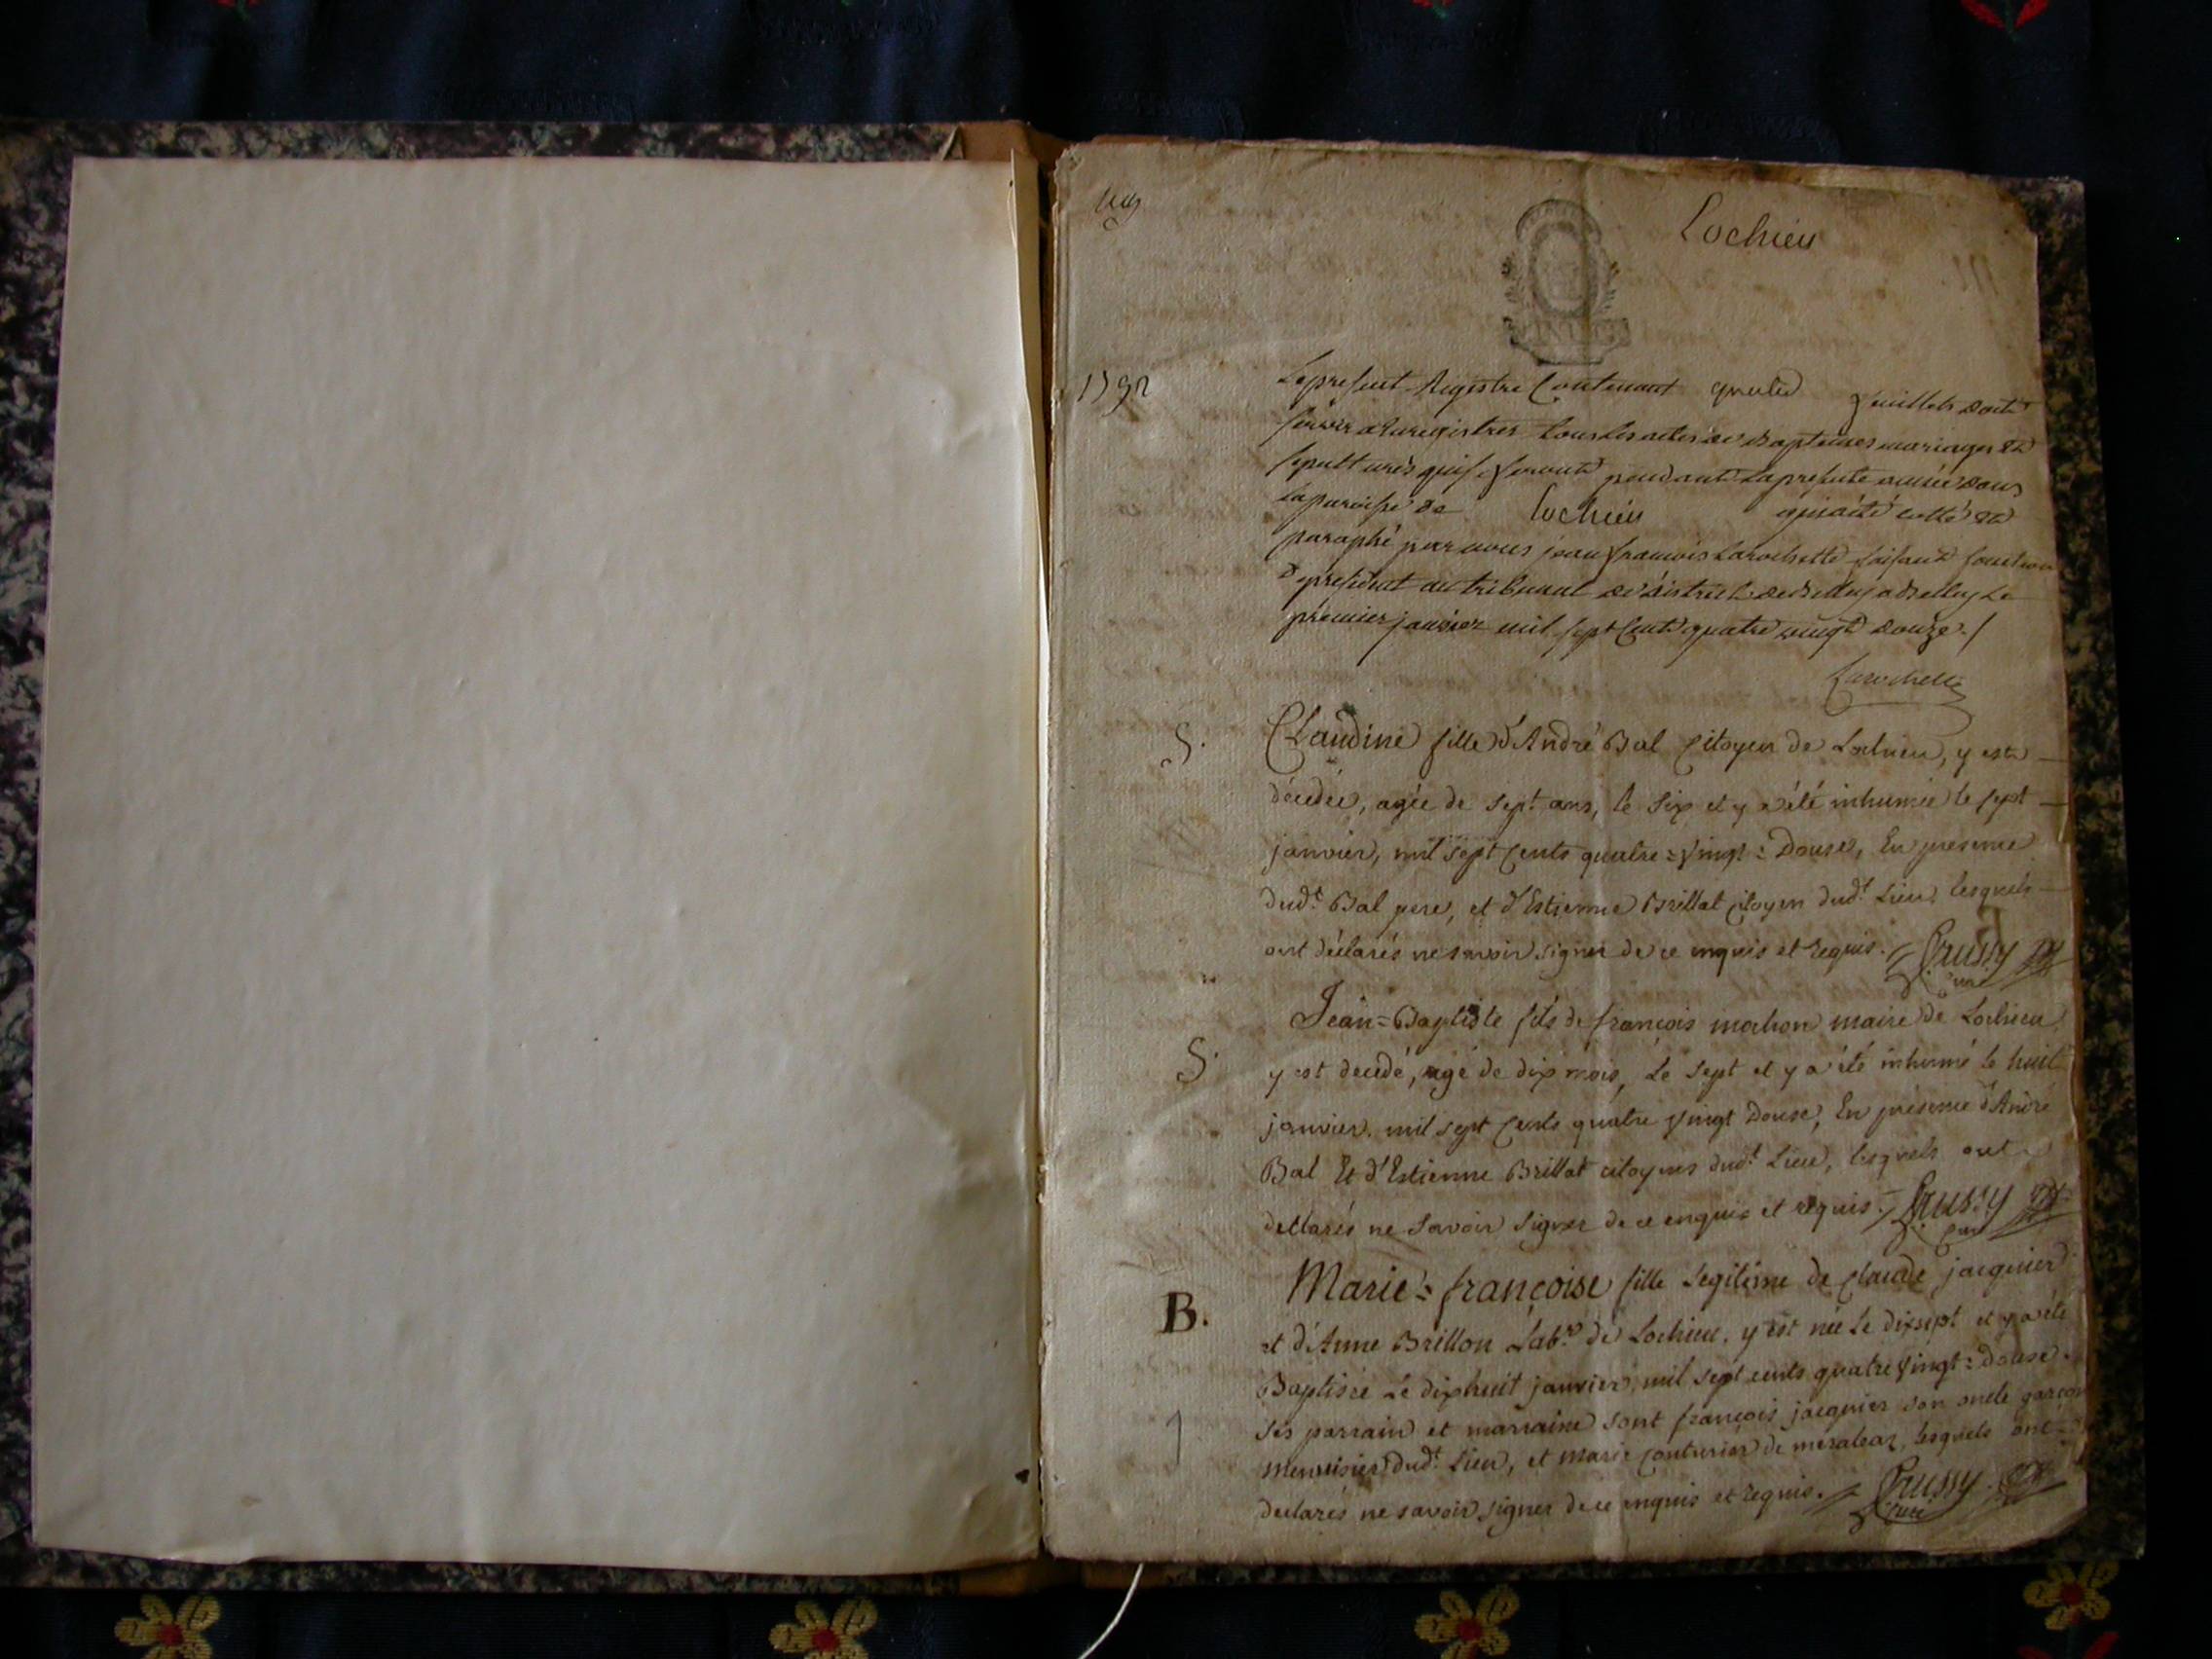 Lochieu
1792
Le present Registre Contenant quatre feuillets doit
servir a Enregistrer tous les actes de Baptemes mariages et
sepultures qui se feront pendant la presente année dans
la paroisse de Lochieu qui a été cotté et
paraphé par nous jean françois Larochette faisant fonction
de president au tribunal de district de Belley a Belley Le
premier janvier mil sept Cent quatre vingt douze ./
Larochette
S. Claudine fille d'André Bal Citoyen de Lochieu, y est
décédée, agée de sept ans, le six et y a été inhumée le sept
janvier, mil sept Cents quatre=Vingt=Douse, En presence
dud.t Bal pere, et d'Estienne Brillat Citoyen dud.t Lieu, lesquels
ont déclarés ne savoir signer de ce enquis et requis. Crussy
Curé
Jean=Baptiste fils de françois mochon maire de Lochieu
S. y est decedé, agé de dix mois, Le sept et y a été inhumé le huit
janvier. mil sept Cents quatre Vingt Douse, En présence d'André
Bal Et d'Estienne Brillat citoyens dud.t Lieu, lesquels ont
declarés ne savoir signer de ce enquis et requis. Crussy
Curé
Marie=françoise fille Legitime de Claude jacquier
B. et d'Anne Brillon Lab.rs de Lochieu, y est née Le dixsept et y a été
Baptisée Le dixhuit janvier, mil sept cents quatre Vingt=Douse.
ses parrain et marraine sont françois jacquier son oncle garçon
menuisier dud.t Lieu, et marie Couturier de lesquels ont
declarés ne savoir signer de ce enquis et requis. Crussy
Curé